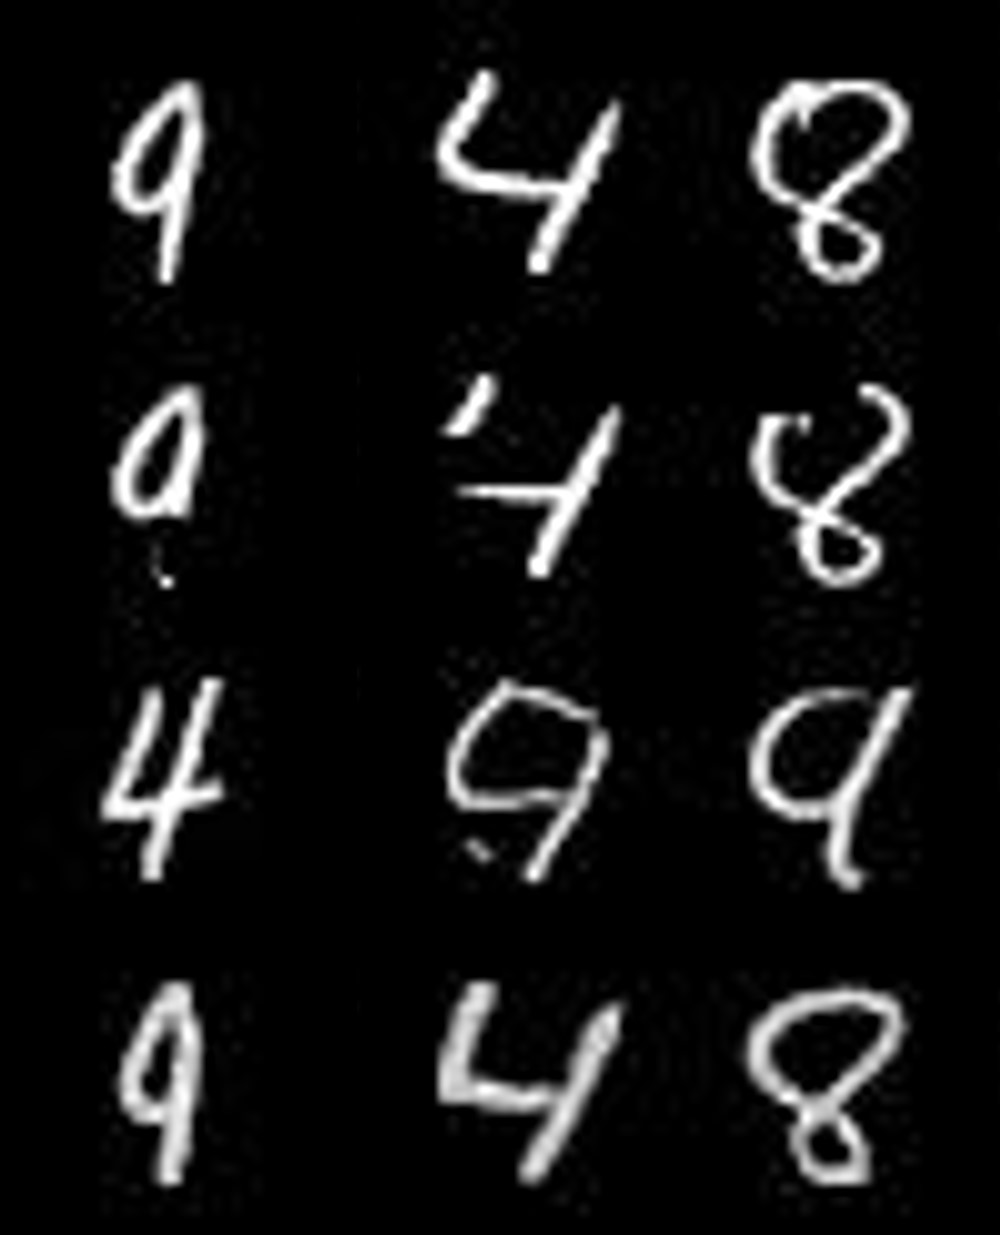 9 4 8
9 4 8
4 9 9
9 4 8